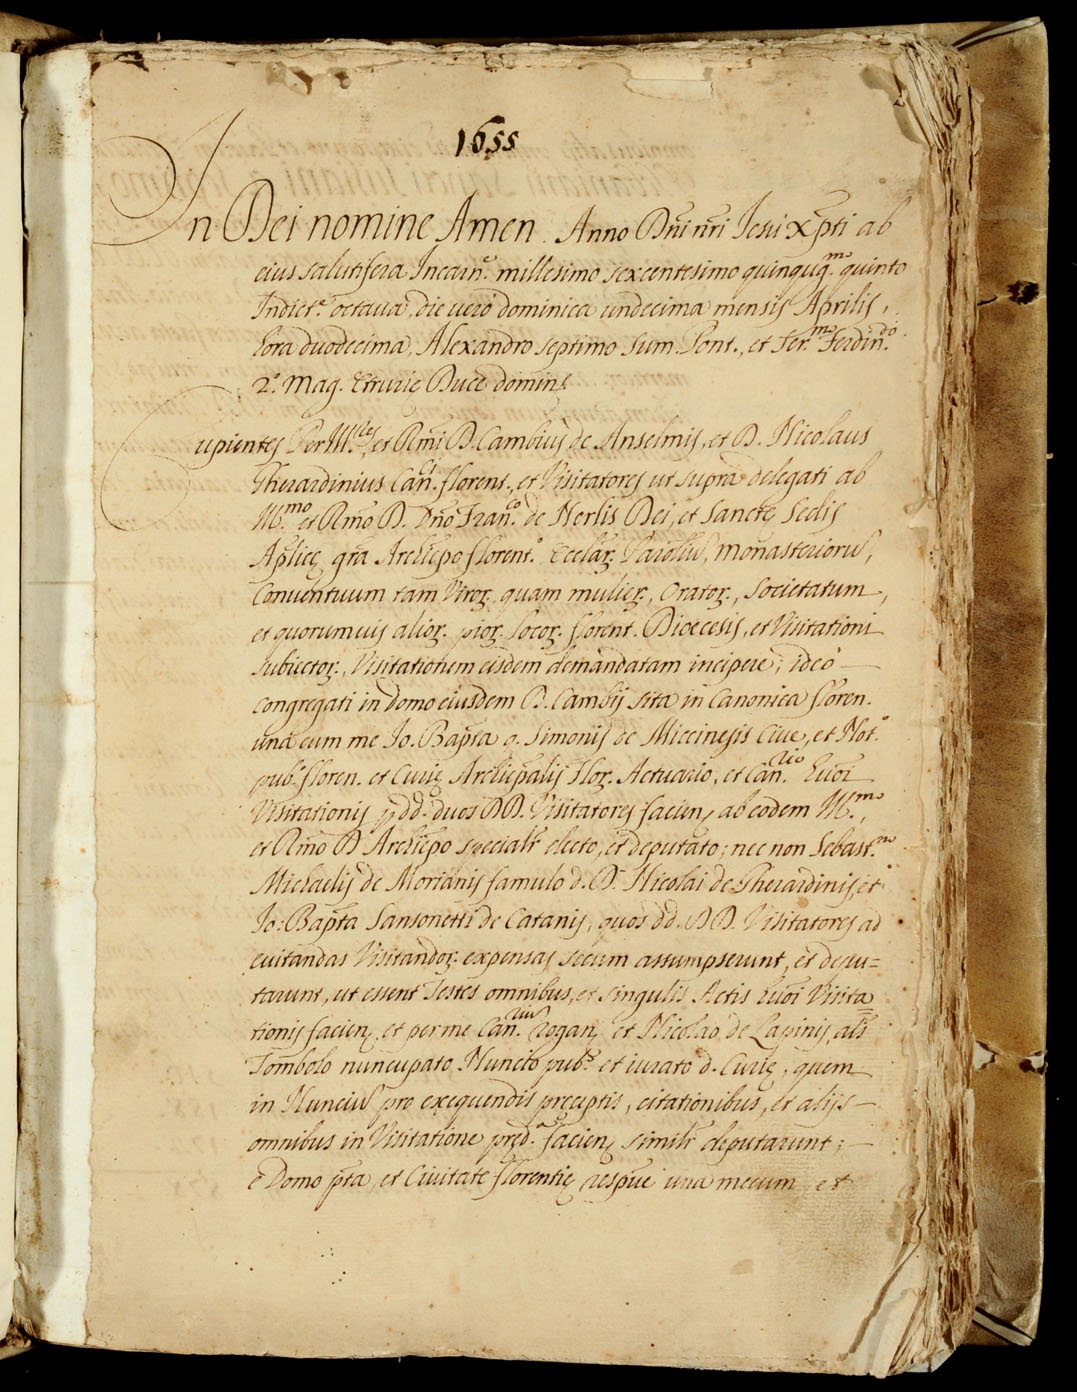 1655
In Dei nomine Amen. Anno Dñi nr̃i Jesu Xp̃ti ab
eius salutifera Incarn.e millesimo sexcentesimo quinquag.mo quinto
Indict.e octaua, die uero dominica undecima mensis Aprilis,
hora duodecima, Alexandro septimo Sum. Pont., et Ser.mo Ferdin.do
2.o Mag. Etrurię Duce domin.e
Cupientes PerIll.res, et Rm̃i D. Cambius de Anselmis, et D. Nicolaus
Gherardinius Can.ci florent., et Visitatores ut supra delegati ab
Ill.mo et Rm̃o D. Dño Fran.co de Nerlis Dei, et Sanctę Sedis
Aplicę gr̃a Archiep̃o florent.o Ecclar. Parochiũ, monasteriorũ,
Conuentuum tam Viror. quam mulier., Orator., Societatum,
et quorumuis alior. pior. locor. florent. Diocesis, et Visitationi
subiector., Visitationem eisdem demandatam incipere; ideò
congregati in domo eiusdem D. Cambij sita in Canonica floren.
una cum me Jo. Bap̃ta q. Simonis de Miccinesis Ciue, et Not.o
pub.o floren. et Curię Archiep̃alis Flor. Actuario, et Can.rio huoi
Visitationis p dd. duos DD. Visitatores facien. ab eodem Ill.mo,
et Rm̃o D. Archiep̃o specialr̃ electo, et deputato; nec non Sebast.no
Michaelis de Morianis famulo d. D. Nicolai de Gherardinis, et
Jo: Bap̃ta Sansonetti de Catanis, quos dd. DD. Visitatores ad
euitandas Visitandor. expensas secum assumpserunt, et depu=
tarunt, ut essent Testes omnibus, et singulis Actis huoi Visita
tionis facien. et per me Can.riũ rogan. et Nicolao de Lapinis, als̃
Tombolo nuncupato Nuncio pub.o et iurato d. Curię, quem
in Nunciũ pro exequendis preceptis, citationibus, et alijs
omnibus in Visitatione pred.a facien. similr̃ deputarunt;
è Domo p̃ta, et Ciuitate florentię resp̃ue una mecum, et